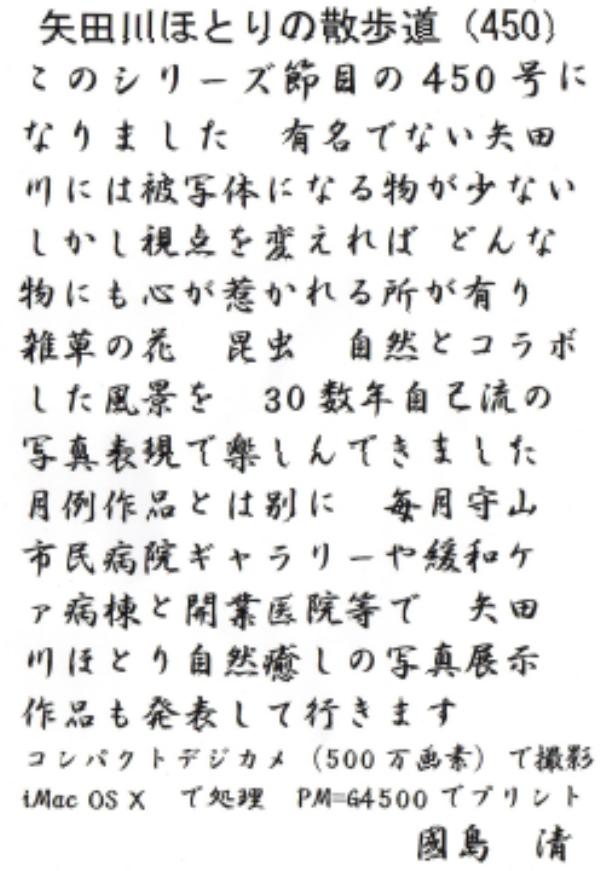 矢田川ほとりの散歩道（450）
このシリーズ節目の450号に
なりました　有名でない矢田
川には被写体になる物が少ない
しかし視点を変えれば どんな
物にも心が惹かれる所が有り
雑草の花　昆虫　自然とコラボ
した風景を　30数年自己流の
写真表現で楽しんできました
月例作品とは別に　毎月守山
市民病院ギャラリーや緩和ケ
ァ病棟と開業医院等で　矢田
川ほとり自然癒しの写真展示
作品も発表して行きます
コンパクトデジカメ（500万画素）で撮影
iMac OS X　で処理　PM=G4500でプリント
國島　清